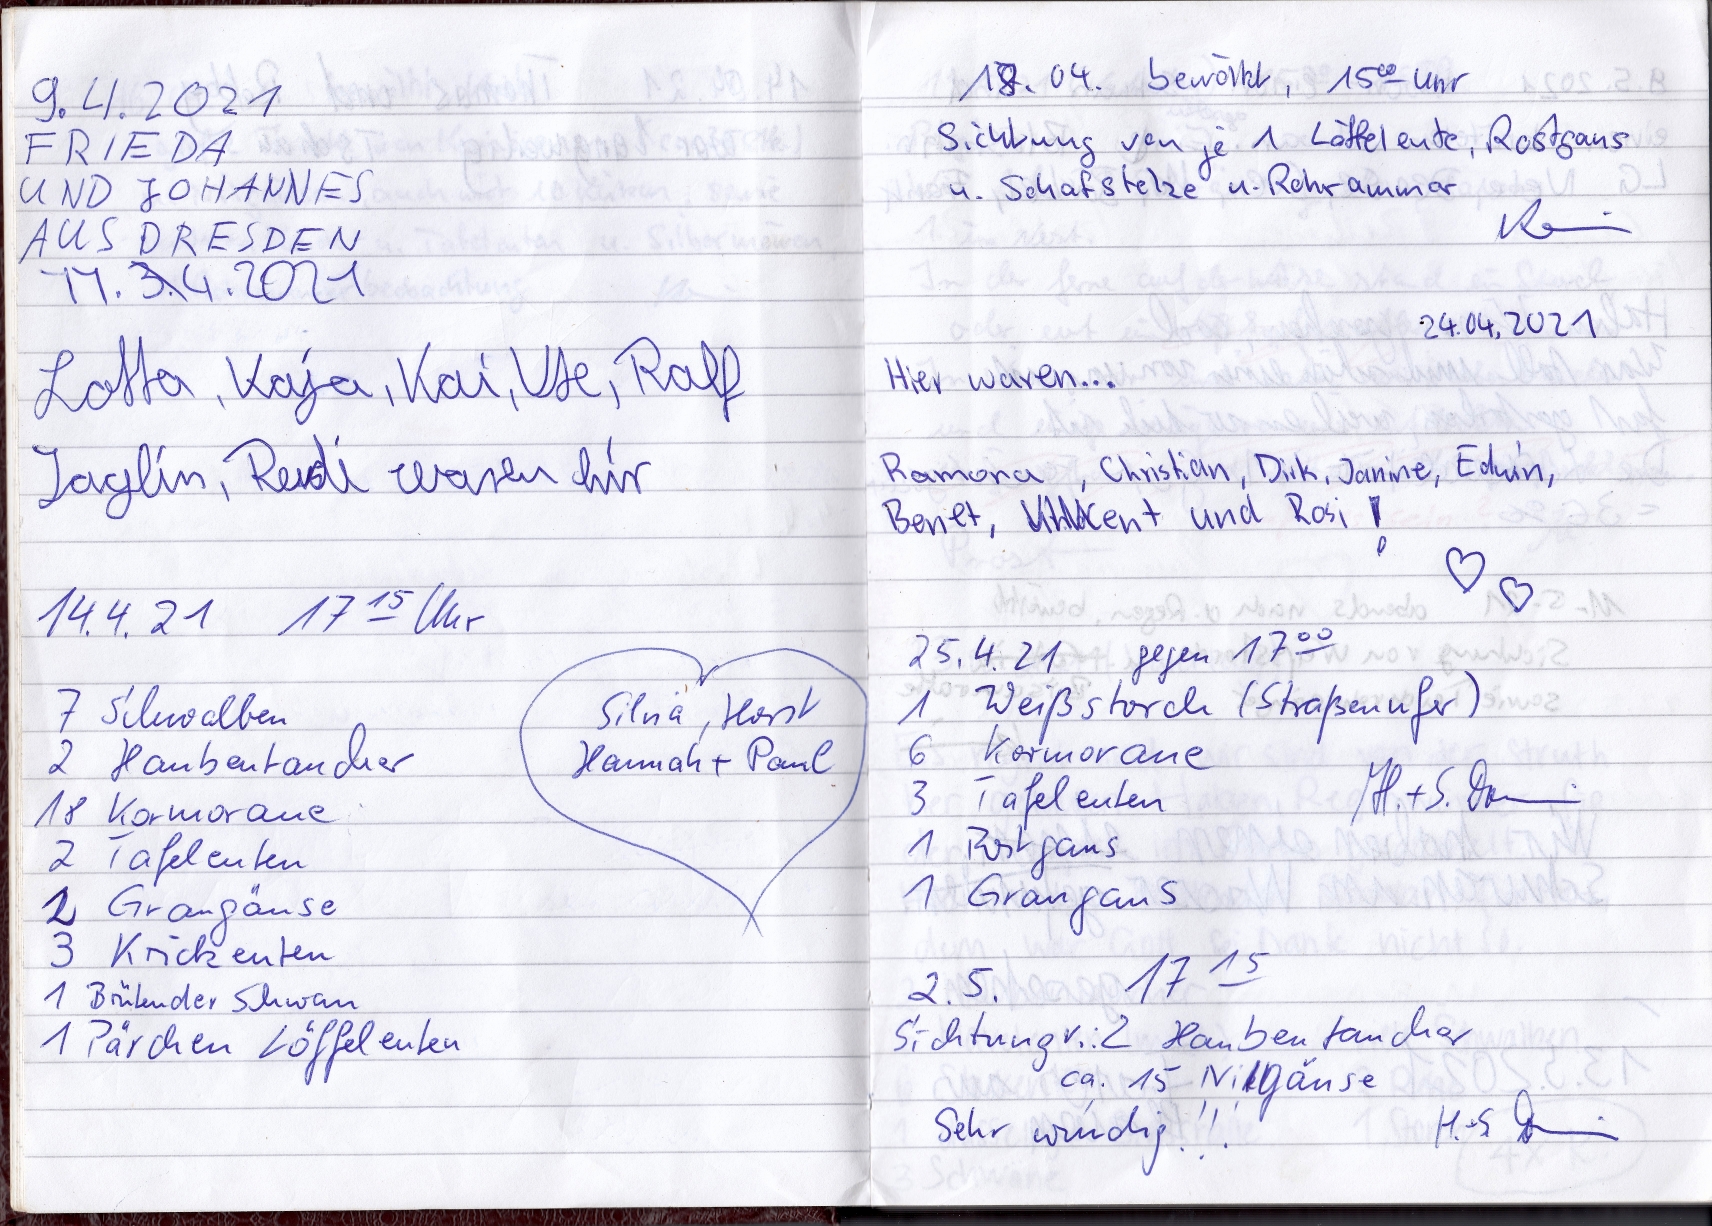 9.4.2021
FRIEDA
UND JOHANNES
AUS DRESDEN
11.4.2021
Lotta, Kaja, Kai, Ute, Ralf
Jaqlin, Rudi waren hir
14.4.21 17 15 Uhr
7 Schwalben
2 Haubentaucher
18 Kormorane
2 Tafelenten
2 Graugänse
3 Krickenten
1 Brütender Schwan
1 Pärchen Löffelenten
Silvia, Horst
Hannah + Paul
18.04. bewölkt, 15 00 Uhr
Sichtung von je 1 Löffelente, Rostgans
u. Schafstelze u. Rohrammer
24.04.2021
Hier waren...
Ramona, Christian, Dirk, Janine, Edwin,
Benet, und Rosi!
25.4.21 gegen 17 00
1 Weißstorch (Straßenufer)
6 Kormorane
3 Tafelenten H.+S.
1 Rostgans
1 Graugans
2.5. 17 15
Sichtung v.: 2 Haubentaucher
ca. 15 Nilgänse
Sehr windig!!! H.+S.